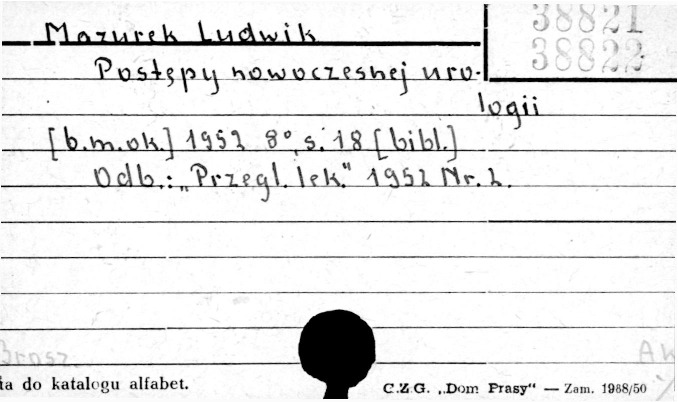 Mazurek Ludwik
38821
38822
Postępy nowoczesnej uro-
logii
[b.m.ok.] 1952 8°, s. 18 [bibl.]
Odb.: „Przegl. lek." 1952 Nr. 2.
Brosz.
AK
ia do katalogu alfabet.
C.Z.G. „Dom Prasy" — Zam. 1968/50